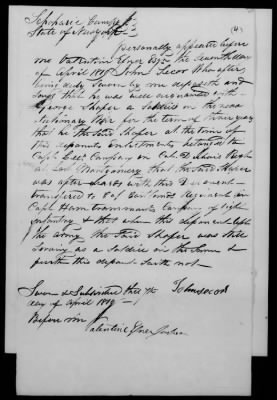 (4)
State of New York
personally appeared before
me Valentine Efner Esqr the seventh day
of April 1819 John Secor Who after
being duly sworn by me deposeth and
saith that he was well acquainted with
George Shafer a Soldier in the
War for the term of three years
that he the said Shafer at the time of
this deponents Enlistment belonged to the
Capt Company in Col. D
at Fort Montgomery that the said Shafer
was after wards with this Deponent
transfered to Col Regiment in
Capt Company of
infantry & that when this deponent left
the army the said Shafer was still
serving as a soldier in the same &
further this deponent saith not
Sworn & Subscribed this 7th John Secor
day of April 1819
Before me
Valentine Efner Justice